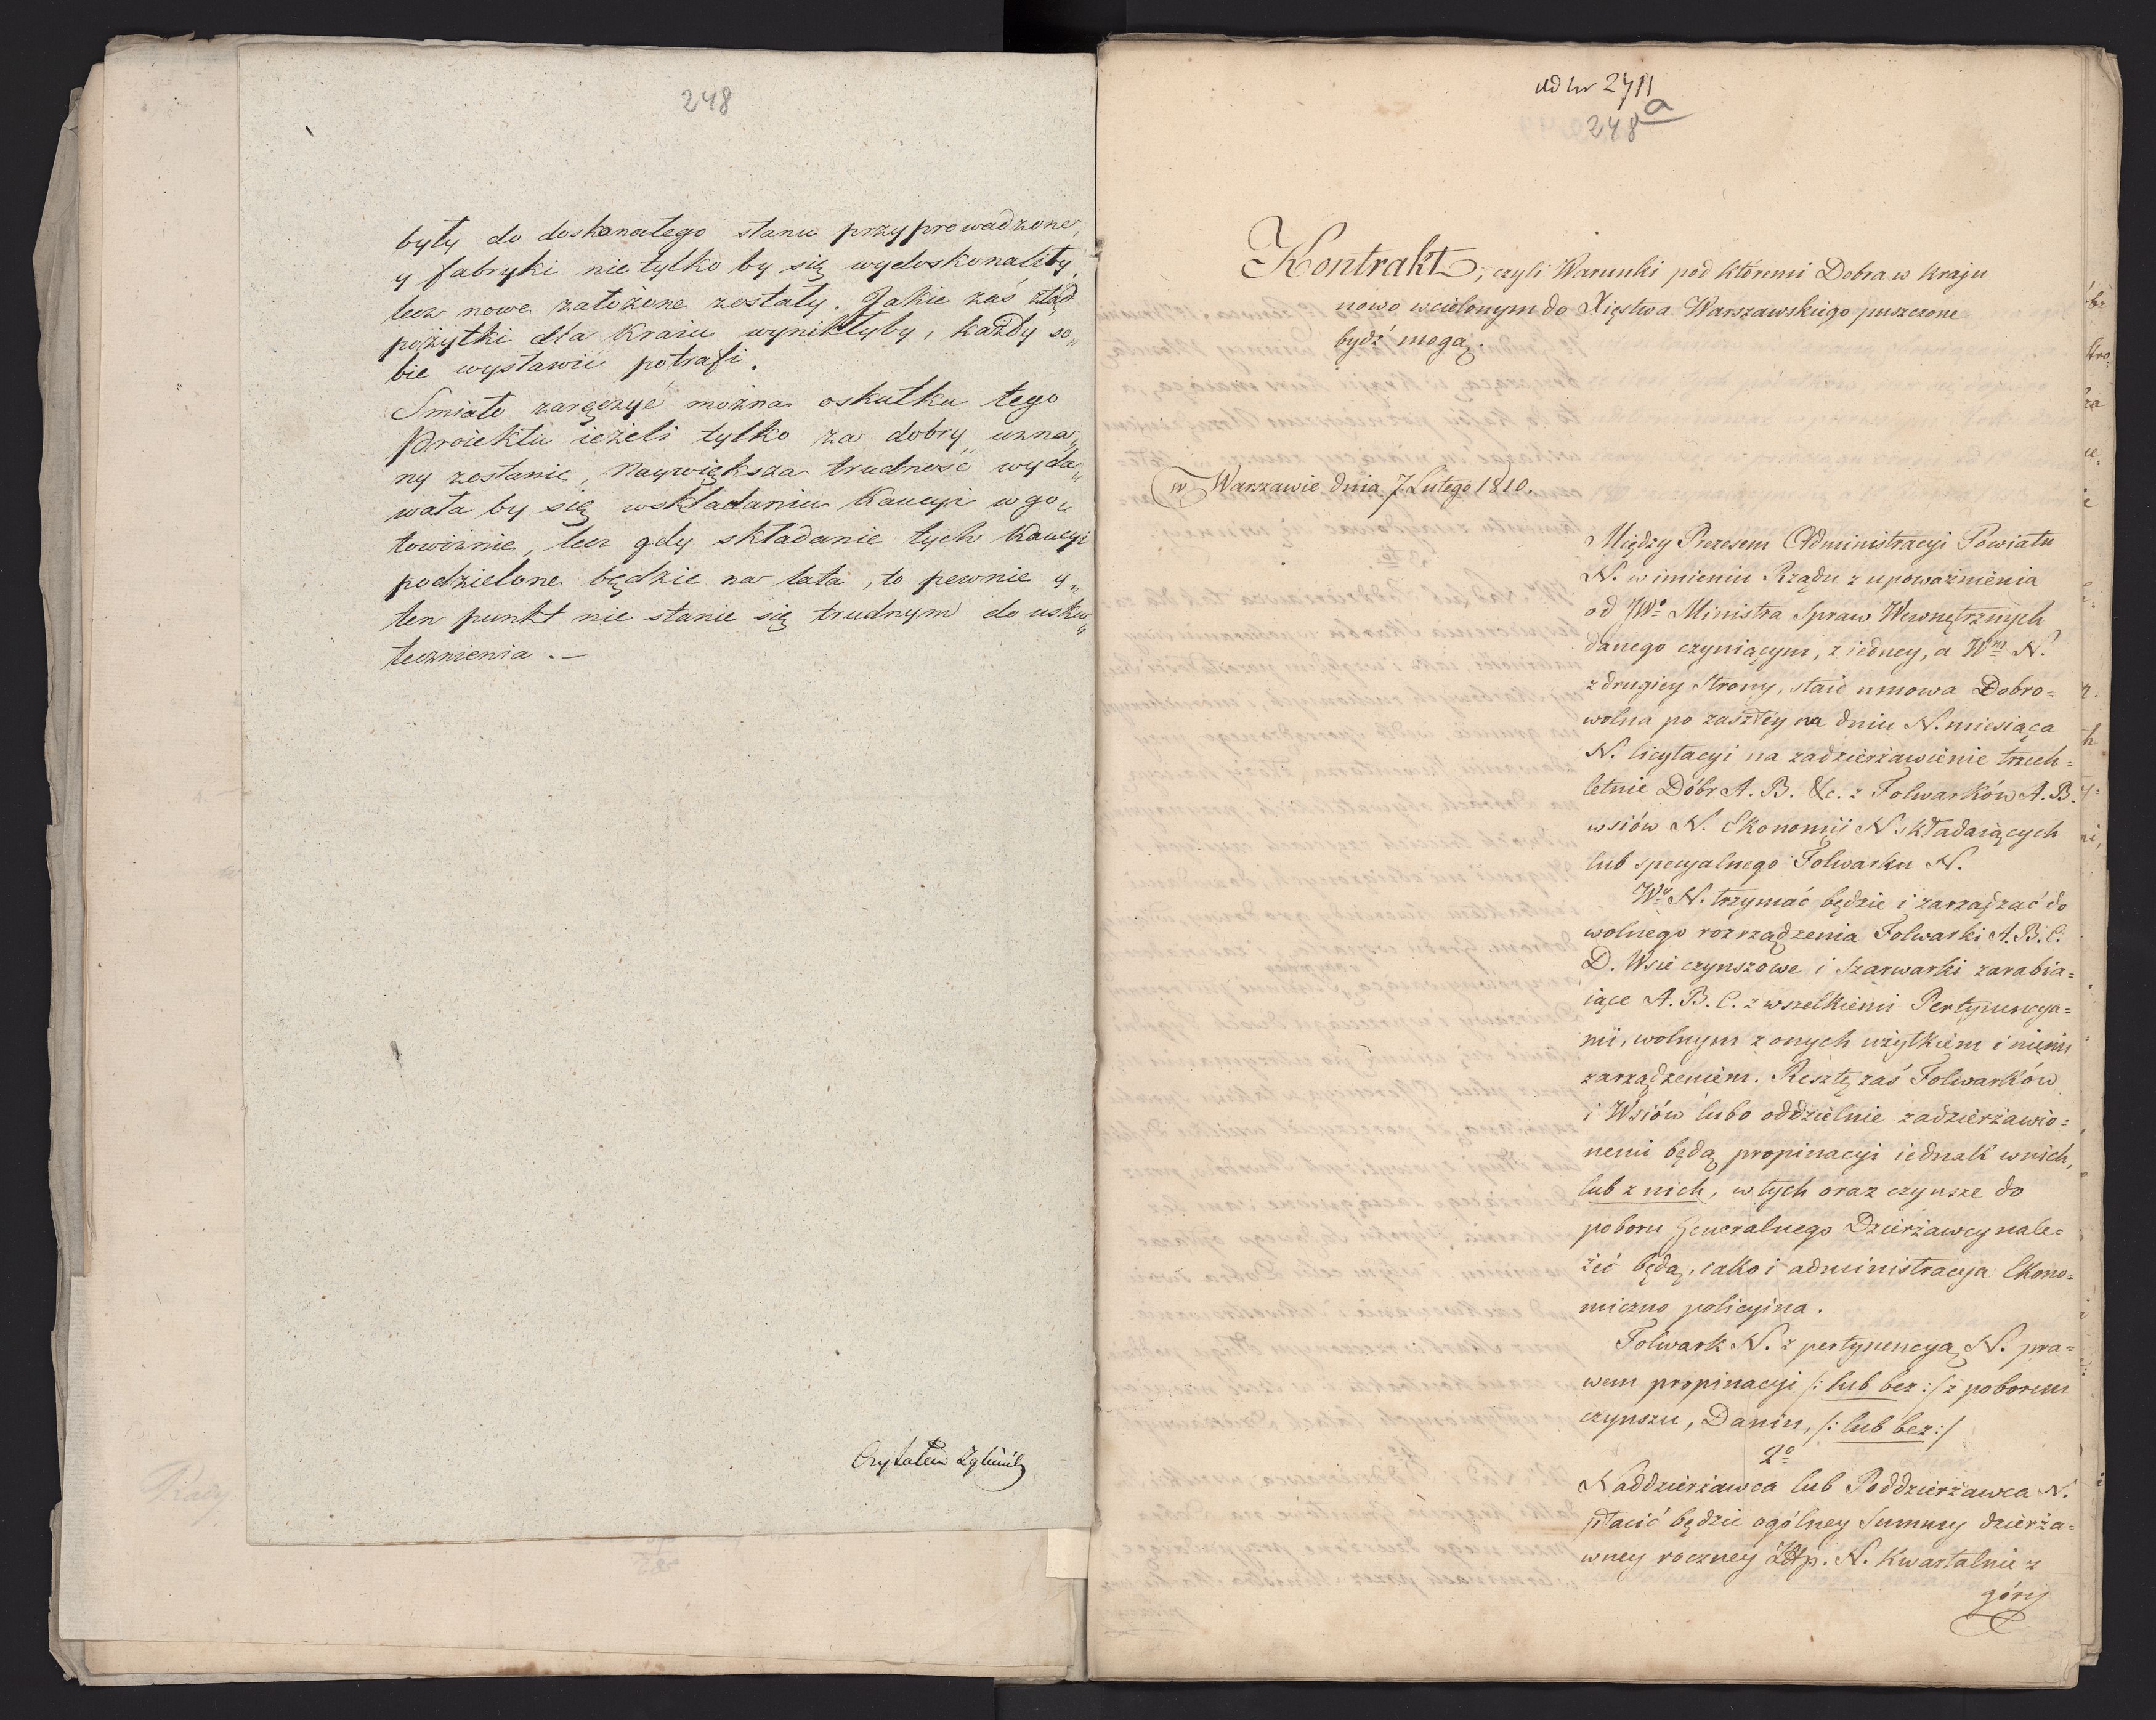 248
były do doskonałego stanu przyprowadzone,
y fabryki nie tylko by się wydoskonaliły,
lecz nowe założone zostały. Jakie zaś ztąd
pożytki dla Kraiu wynikłyby, każdy so„
bie wystawić potrafi.
Smiało zaręczyć można oskutku tego
Proiektu ieżeli tylko za dobry uzna„
ny zostanie, Naywiększa trudność wyda„
wała by się wskładaniu Kaucyi w go„
towiznie, lecz gdy składanie tych Kaucyi
podzielone będzie na lata, to pewnie y„
ten punkt nie stanie się trudnym do usku„
tecznienia. —
Czytałem
ad Nr 2711
248 a
Kontrakt, czyli Warunki pod któremi Dobra w Kraju
nowo wcielonym do Xięstwa Warszawskiego puszczone
bydź mogą.
w Warszawie dnia 7. Lutego 1810.
Między Prezesem Administracyi Powiatu
N. w imieniu Rządu z upoważnienia
od JWo Ministra Spraw Wewnętrznych
danego czyniącym, z iedney, a Wm N.
z drugiey Strony, staie umowa Dobro=
wolna po zaszłey na dniu N. miesiąca
N. licytacyi na zadzierżawienie trzech=
letnie Dóbr A. B. &c. z Folwarków A. B.
wsiów N. Ekonomii N składaiących
lub specyalnego Folwarku N.
Wy N. trzymać będzie i zarządzać do
wolnego rozrządzenia Folwarki A. B. C.
D. Wsie czynszowe i Szarwarki zarabia=
iące A. B. C. z wszelkiemi Pertynencya=
mi, wolnym z onych użytkiem i niemi
zarządzeniem. Resztę zaś Folwarków
i Wsiów lubo oddzielnie zadzierżawio=
nemi będą, propinacyi iednak w nich,
lub z nich, w tych oraz czynsze do
poboru Generalnego Dzierżawcy nale=
żeć będą, iako i administracya Ekono=
miczno policyina.
Folwark N. z pertynencyą N. pra=
wem propinacyi /: lub bez :/ z poborem
czynszu, Danin, /: lub bez :/
2o
Naddzierżawca lub Poddzierżawca N.
płacić będzie ogólney Summy dzierża=
wney roczney Złłp. N. Kwartalnie z
góry